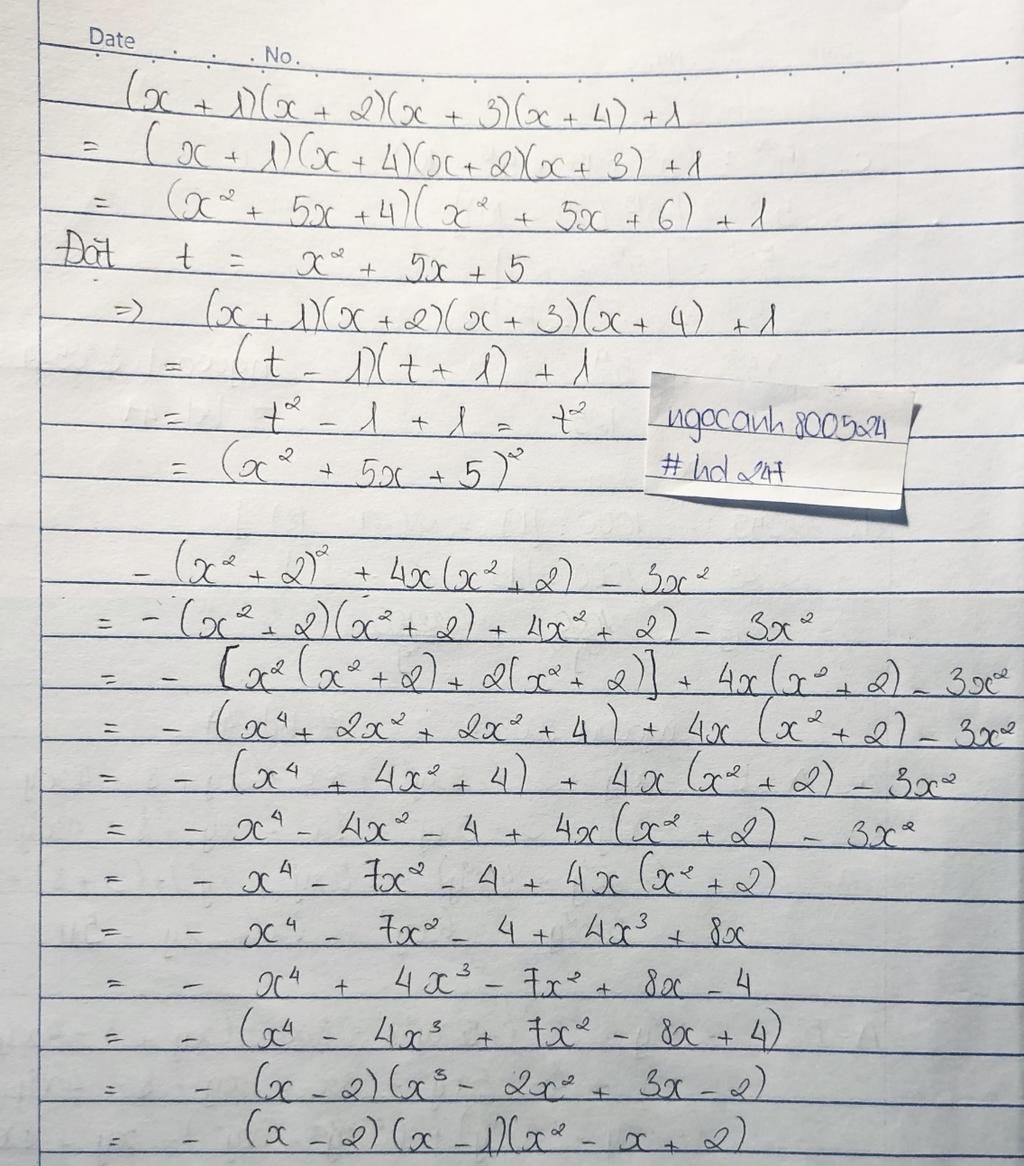 Date . . . . No.
(x + 1)(x + 2)(x + 3)(x + 4) + 1
= (x + 1)(x + 4)(x + 2)(x + 3) + 1
= (x² + 5x + 4)(x² + 5x + 6) + 1
Đặt t = x² + 5x + 5
=> (x + 1)(x + 2)(x + 3)(x + 4) + 1
= (t - 1)(t + 1) + 1
= t² - 1 + 1 = t²
= (x² + 5x + 5)²
ngocanh800524
#hd247
- (x² + 2)² + 4x(x² + 2) - 3x²
= - (x² + 2)(x² + 2) + 4x² + 2) - 3x²
= - [x²(x² + 2) + 2(x² + 2)] + 4x(x² + 2) - 3x²
= - (x⁴ + 2x² + 2x² + 4) + 4x (x² + 2) - 3x²
= - (x⁴ + 4x² + 4) + 4x (x² + 2) - 3x²
= - x⁴ - 4x² - 4 + 4x(x² + 2) - 3x²
= - x⁴ - 7x² - 4 + 4x(x² + 2)
= - x⁴ - 7x² - 4 + 4x³ + 8x
= - x⁴ + 4x³ - 7x² + 8x - 4
= - (x⁴ - 4x³ + 7x² - 8x + 4)
= - (x - 2)(x³ - 2x² + 3x - 2)
= - (x - 2)(x - 1)(x² - x + 2)